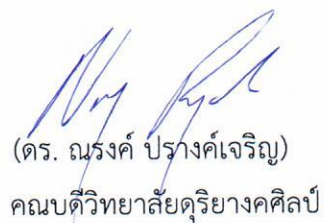 (ดร. ณรงค์ ปรางค์เจริญ)
คณบดีวิทยาลัยดุริยางคศิลป์